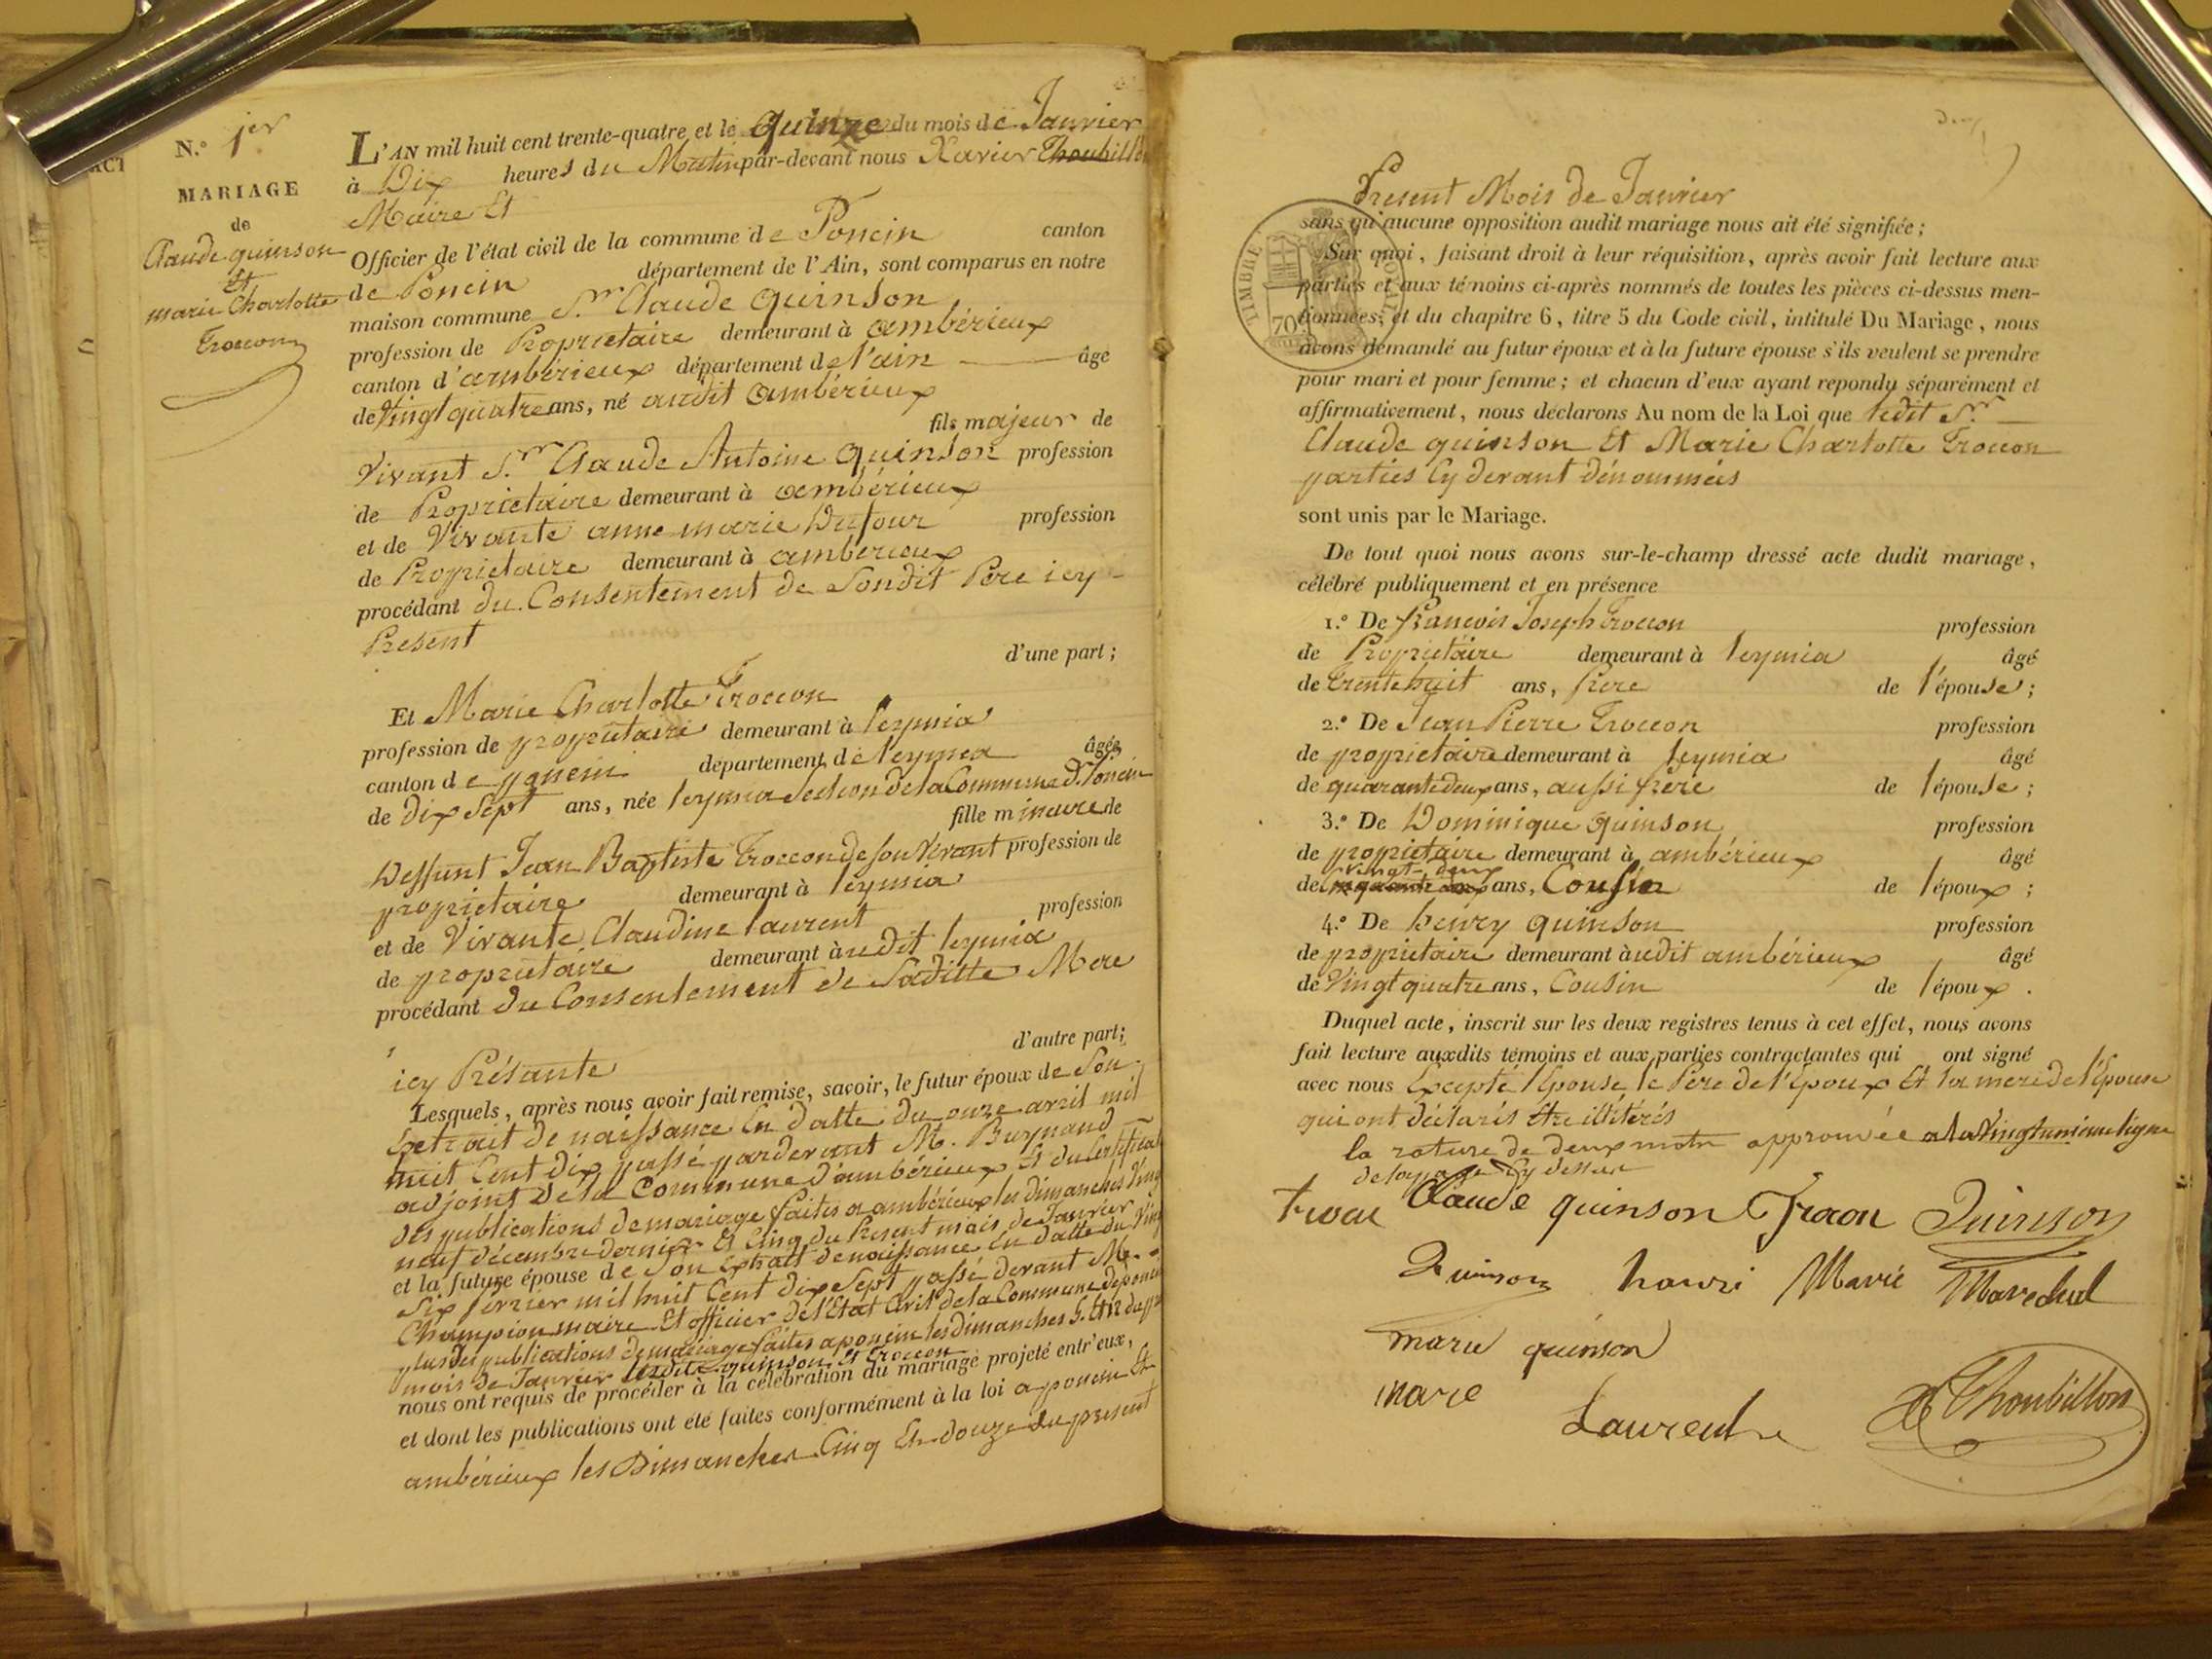 ACT
N.º 1er
MARIAGE
de
Claude quinson
Et
marie Charlotte
Troccon
L'AN mil huit cent trente-quatre et le quinze du mois de Janvier
à Dix heures du Matin par-devant nous Xavier Thoubillon
Maire Et
Officier de l'état civil de la commune de Poncin canton
de Poncin département de l'Ain, sont comparus en notre
maison commune S.r Claude quinson
profession de Proprietaire demeurant à ambérieux
canton d'ambérieux département de l'ain âge
de Vingt quatre ans, né audit ambérieux
fils majeur de
Vivant S.r Claude Antoine quinson profession
de Proprietaire demeurant à ambérieux
et de Vivante anne marie Dufour profession
de Proprietaire demeurant à ambérieux
procédant du Consentement de Sondit Pere icy
Présent
d'une part ;
Et Marie Charlotte Troccon
profession de proprietaire demeurant à leymia
canton de département de leymia âgée
de dix Sept ans, née leymia Section de la Commune d. Poncin
fille mineure de
Deffunt Jean Baptiste Troccon de son Vivant profession de
proprietaire demeurant à leymia
et de Vivante Claudine laurent profession
de proprietaire demeurant àudit leymia
procédant du Consentement de Saditte Mere
d'autre part ;
icy Présante
Lesquels, après nous avoir fait remise, savoir, le futur époux de Son
Extrait de naissance En datte du onze avril mil
huit Cent dix passé pardevant M. Buynand
adjoint de la Commune d'ambérieux Et du Certificat
des publications de mariage faites a ambérieux les dimanches Vingt
neuf décembre dernier Et Cinq du Present mois de Janvier
et la future épouse de Son Extrait de naissance En datte du Vingt
Six fevrier mil huit Cent dix Sept passé devant M.
Champion maire Et officier de l'Etat Civil de la Commune de poncin
plus des publications de mariage faites a poncin les dimanches 5. Et 12 du
mois de Janvier lesdits quinson Et Troccon
nous ont requis de procéder à la célébration du mariage projeté entr'eux,
et dont les publications ont été faites conformément à la loi a poncin Et
ambérieux les Dimanches Cinq Et douze du présent
Présent Mois de Janvier
sans qu'aucune opposition audit mariage nous ait été signifiée ;
TIMBRE ROYAL
70
Sur quoi, faisant droit à leur réquisition, après avoir fait lecture aux
parties et aux témoins ci-après nommés de toutes les pièces ci-dessus men-
tionnées, et du chapitre 6, titre 5 du Code civil, intitulé Du Mariage, nous
avons demandé au futur époux et à la future épouse s'ils veulent se prendre
pour mari et pour femme ; et chacun d'eux ayant repondu séparément et
affirmativement, nous déclarons Au nom de la Loi que ledit S.r
Claude quinson Et Marie Charlotte Troccon
parties Cy devant dénommés
sont unis par le Mariage.
De tout quoi nous avons sur-le-champ dressé acte dudit mariage,
célébré publiquement et en présence
1.º De francois Joseph Troccon profession
de Proprietaire demeurant à leymia âgé
de trente huit ans, frere de l'épouse ;
2.º De Jean Pierre Troccon profession
de proprietaire demeurant à leymia âgé
de quarante deux ans, aussi frere de l'épouse ;
3.º De Dominique quinson profession
de proprietaire demeurant à ambérieux âgé
vingt-deux
de ans, Cousin de l'époux ;
4.º De henry quinson profession
de proprietaire demeurant àudit ambérieux âgé
de Vingt quatre ans, Cousin de l'époux.
Duquel acte, inscrit sur les deux registres tenus à cet effet, nous avons
fait lecture auxdits témoins et aux parties contractantes qui ont signé
avec nous Excepté l'Epouse le Pere de l'époux Et la mere de l'Epouse
qui ont déclarés Etre illitérés
la rature de deux mots approuvée a la Vingt unieme ligne
de la page Cy dessus
Claude quinson Quinson
Quinson hanri Marie Marechal
marie quinson
mare Laurent X Thoubillon